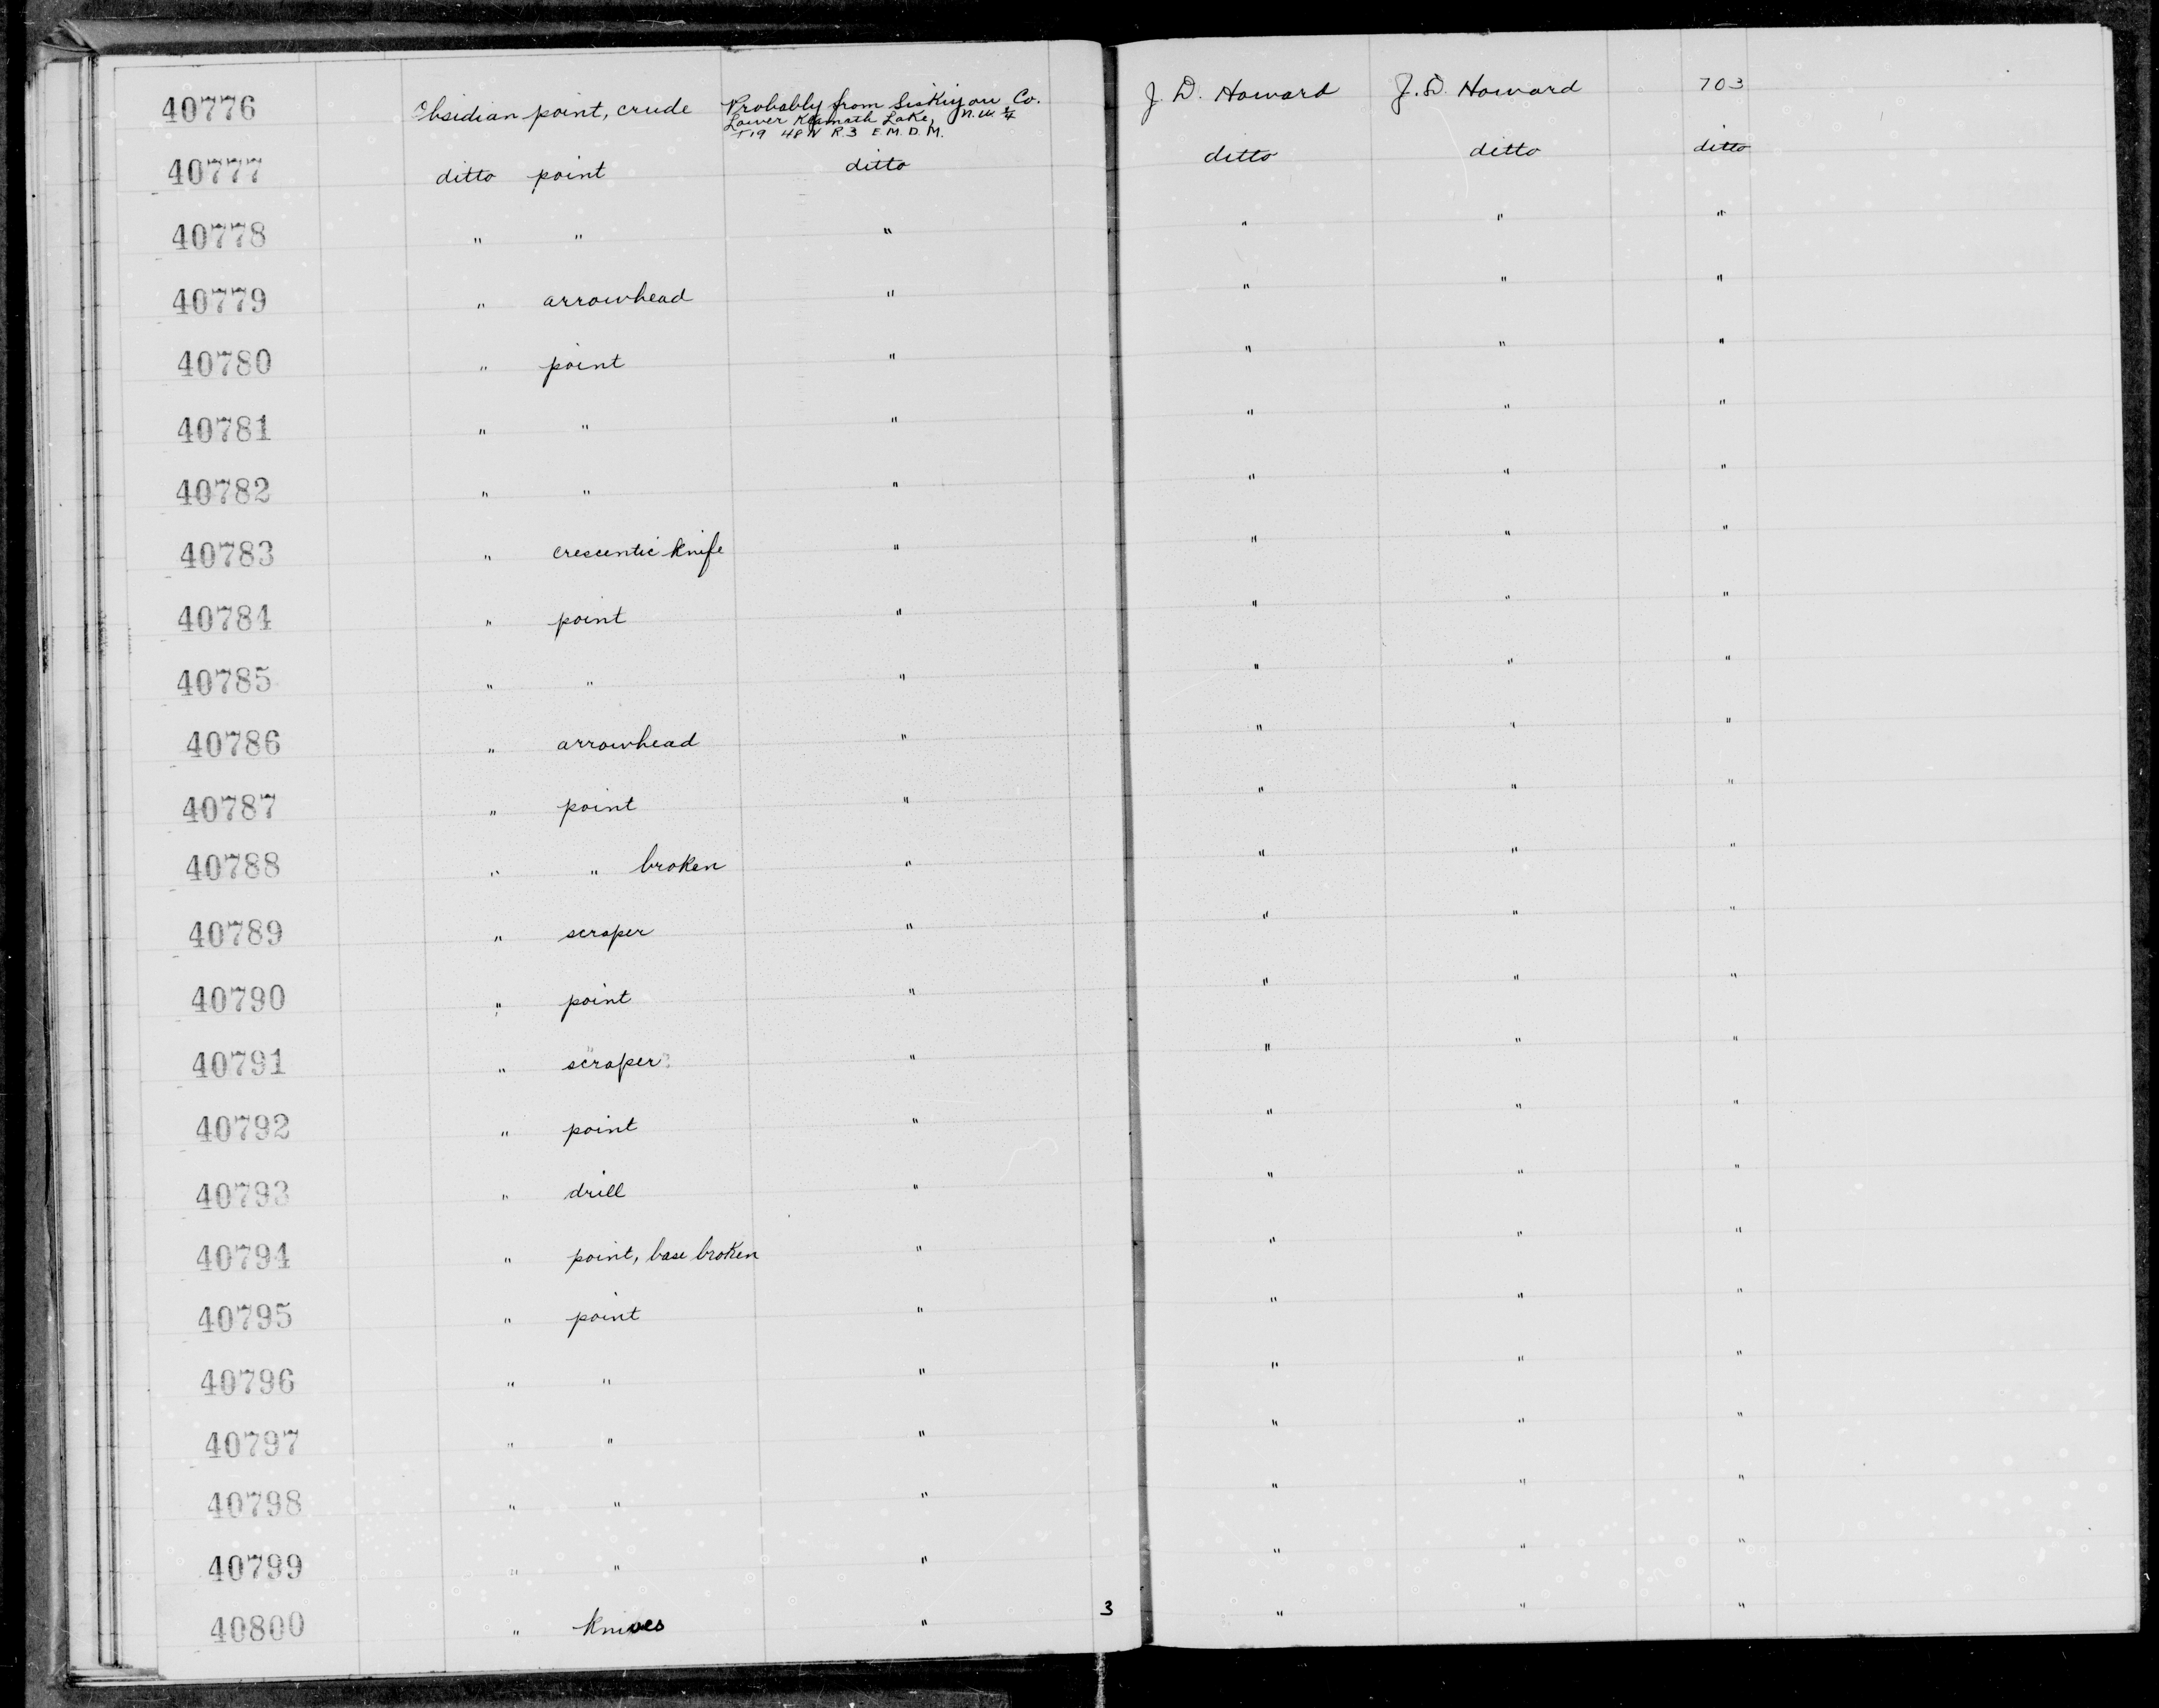 40776 Obsidian point, crude Probably from Siskiyou Co. J. D. Howard J. D. Howard 703
Lower Klamath Lake, N.W. ¼
T19 48N R.3 E M.D.M.
40777 ditto point ditto ditto ditto ditto
40778 " " " " " "
40779 " arrowhead " " " "
40780 " point " " " "
40781 " " " " " "
40782 " " " " " "
40783 " crescentic knife " " " "
40784 " point " " " "
40785 " " " " " "
40786 " arrowhead " " " "
40787 " point " " " "
40788 " " broken " " " "
40789 " scraper " " " "
40790 " point " " " "
40791 " scraper " " " "
40792 " point " " " "
40793 " drill " " " "
40794 " point, base broken " " " "
40795 " point " " " "
40796 " " " " " "
40797 " " " " " "
40798 " " " " " "
40799 " " " " " "
40800 " knives " 3 " " "